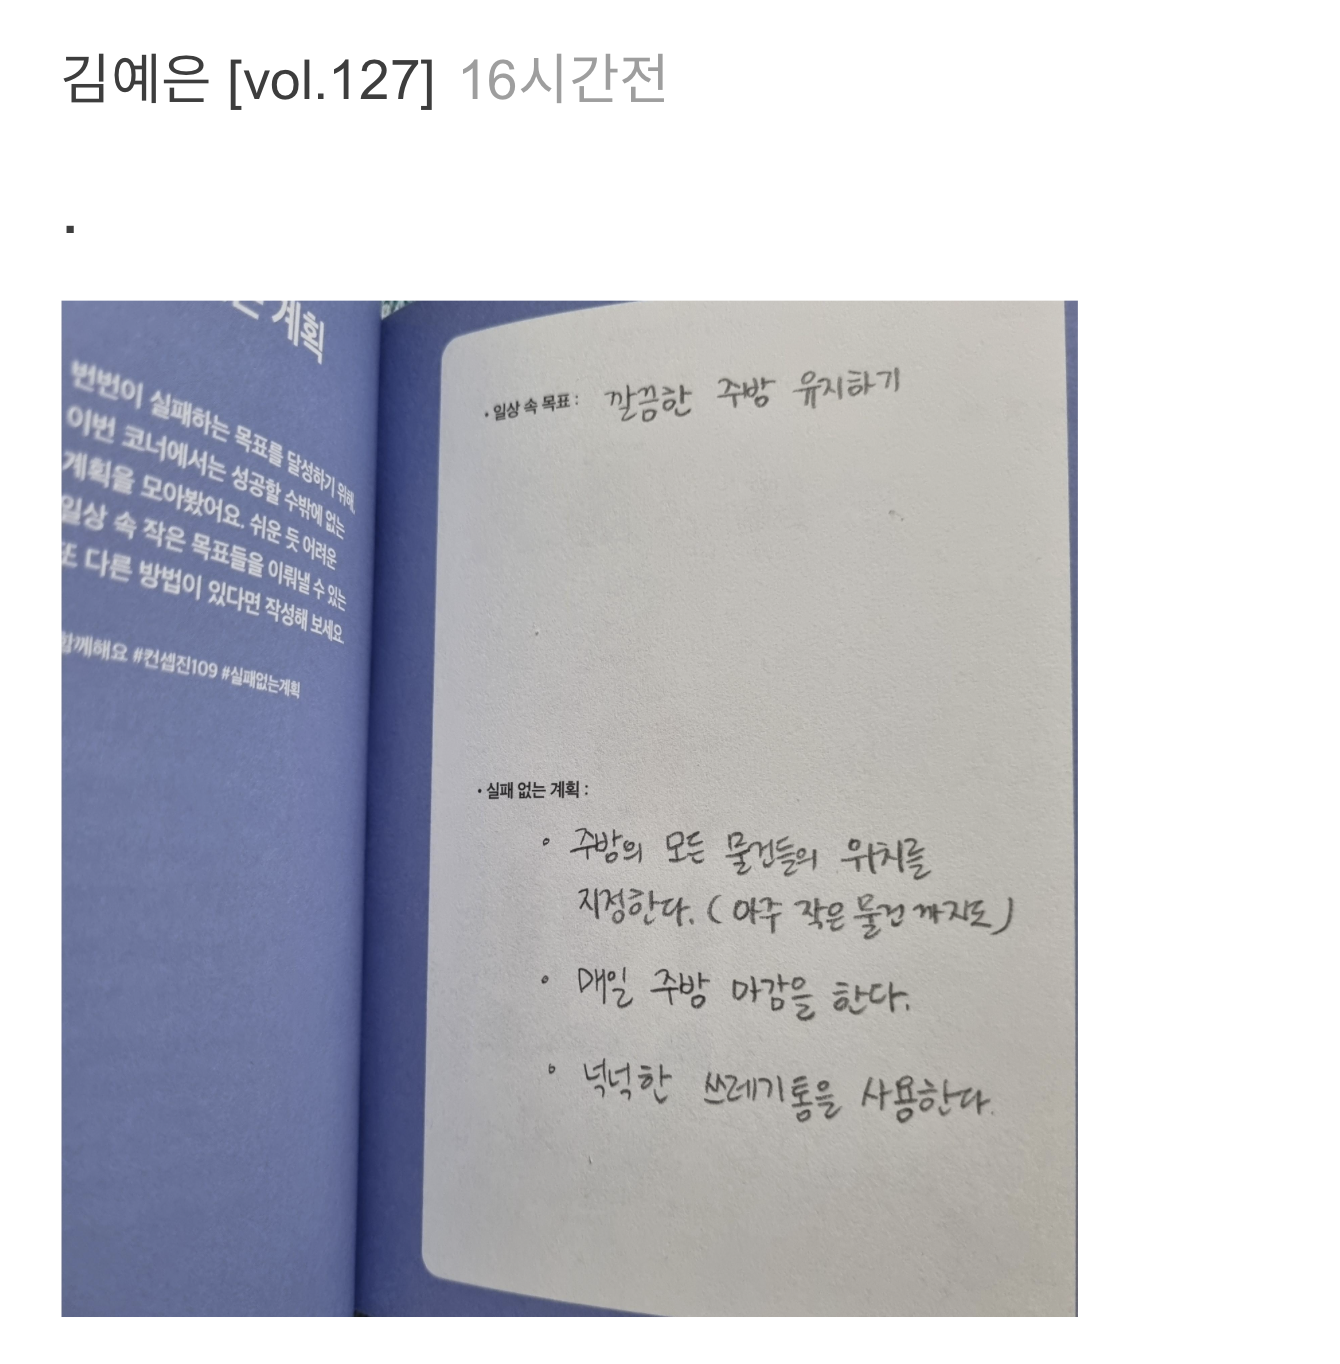 김예은 [vol.127] 16시간전
.
계획
번번이 실패하는 목표를 달성하기 위해,
이번 코너에서는 성공할 수밖에 없는
계획을 모아봤어요. 쉬운 듯 어려운
일상 속 작은 목표들을 이뤄낼 수 있는
또 다른 방법이 있다면 작성해 보세요
함께해요 #컨셉진109 #실패없는계획
• 일상 속 목표 : 깔끔한 주방 유지하기
• 실패 없는 계획 :
◦ 주방의 모든 물건들의 위치를
지정한다. (아주 작은 물건까지도)
◦ 매일 주방 마감을 한다.
◦ 넉넉한 쓰레기통을 사용한다.